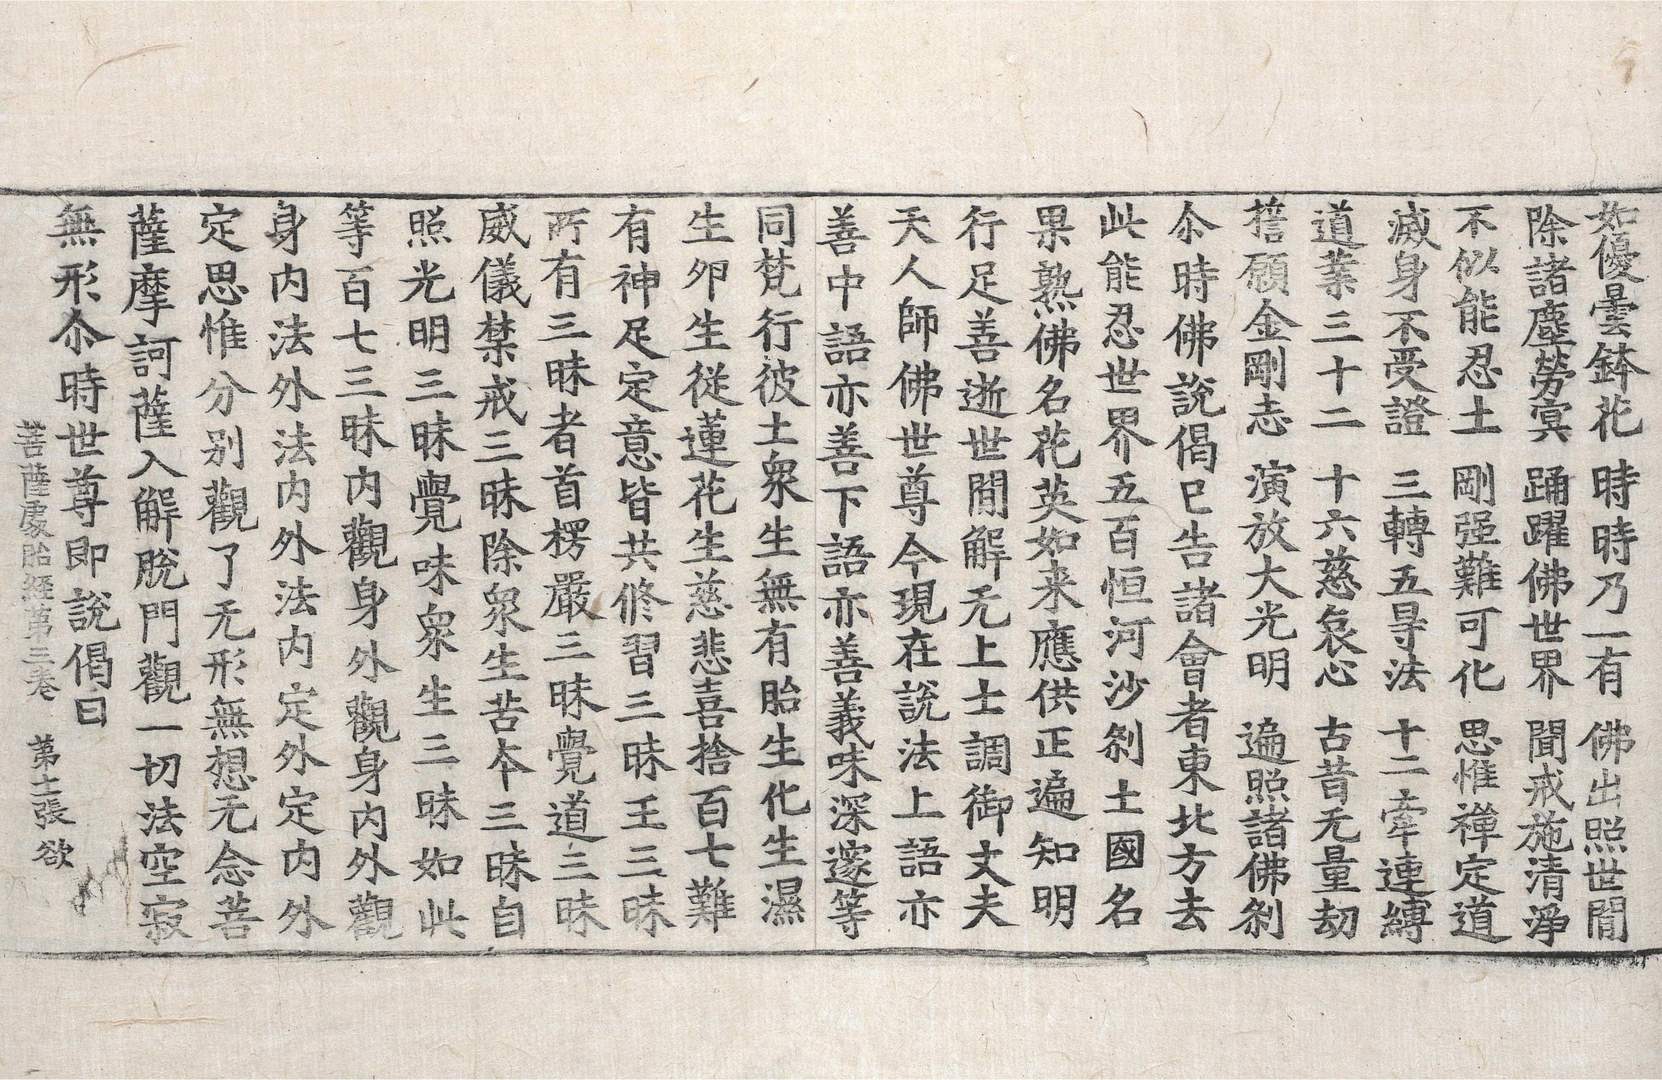 如優曇鉢花　時時乃一有　佛出照世間
除諸塵勞㝠　踊躍佛世界　聞戒施清淨
不似能忍土　剛强難可化　思惟禪定道
滅身不受證　三轉五㝵法　十二牽連縛
道業三十二　十六慈哀心　古昔无量劫
誓願金剛志　演放大光明　遍照諸佛刹
尒時佛說偈已告諸會者東北方去
此能忍世界五百恒河沙刹土國名
果熟佛名花英如来應供正遍知明
行足善逝世間解无上士調御丈夫
天人師佛世尊今現在說法上語亦
善中語亦善下語亦善義味深邃等
同梵行彼土衆生無有胎生化生濕
生卵生從蓮花生慈悲喜捨百七難
有神足定意皆共修習三昧王三昧
所有三昧者首楞嚴三昧覺道三昧
威儀禁戒三昧除衆生苦本三昧自
照光明三昧覺味衆生三昧如此
等百七三昧内觀身外觀身内外觀
身内法外法内外法内定外定内外
定思惟分别觀了无形無想无念菩
薩摩訶薩入解脫門觀一切法空寂
無形尒時世尊即說偈曰
菩薩處胎經第三卷　第士張　欲